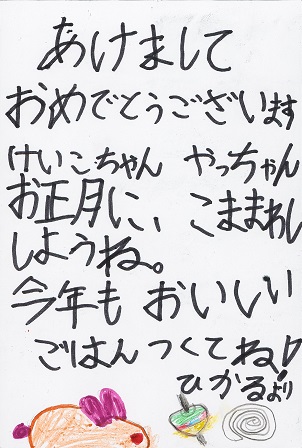 あけまして
おめでとうございます
けいこちゃん やっちゃん
お正月に、こままわし
しようね。
今年も おいしい
ごはん つくてね!
ひかるより